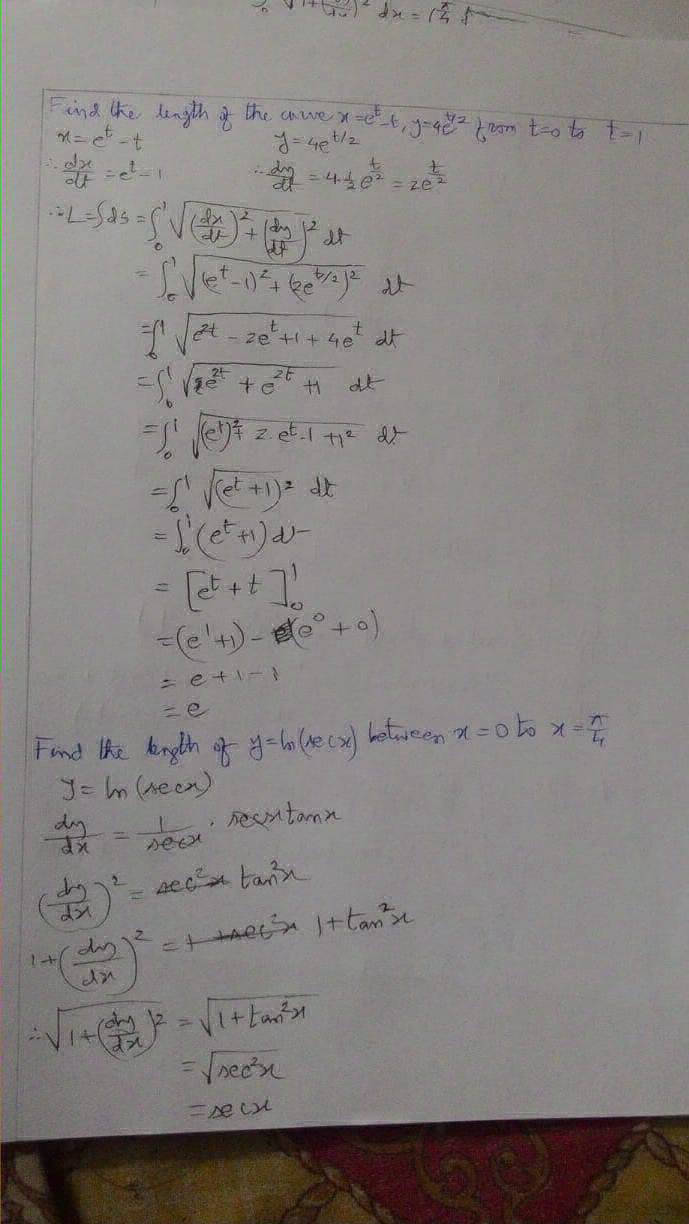 ∫₀ √1+(dy/dx)² dx = (π/4
Find the length of the curve x=e^t-t, y=4e^t/2 from t=0 to t=1
x=e^t-t y=4e^t/2
∴ dx/dt = e^t-1 ∴ dy/dt = 4·1/2 e^t/2 = 2e^t/2
∴ L=∫ds = ∫₀¹ √(dx/dt)²+(dy/dt)² dt
= ∫₀¹ √(e^t-1)²+(2e^t/2)² dt
= ∫₀¹ √e^2t - 2e^t+1+4e^t dt
= ∫₀¹ √2e^2t + e^2t + 1 dt
= ∫₀¹ √(e^t)²+ 2·e^t·1 +1² dt
= ∫₀¹ √(e^t+1)² dt
= ∫₀¹ (e^t+1) dt
= [e^t+t]₀¹
= (e¹+1) - (e⁰+0)
= e+1-1
= e
Find the length of y=ln(secx) between x=0 to x=π/4
y = ln(secx)
dy/dx = 1/secx · secxtanx
(dy/dx)² = sec²x tan²x
1+(dy/dx)² = 1+sec²x 1+tan²x
∴ √1+(dy/dx)² = √1+tan²x
= √sec²x
= secx